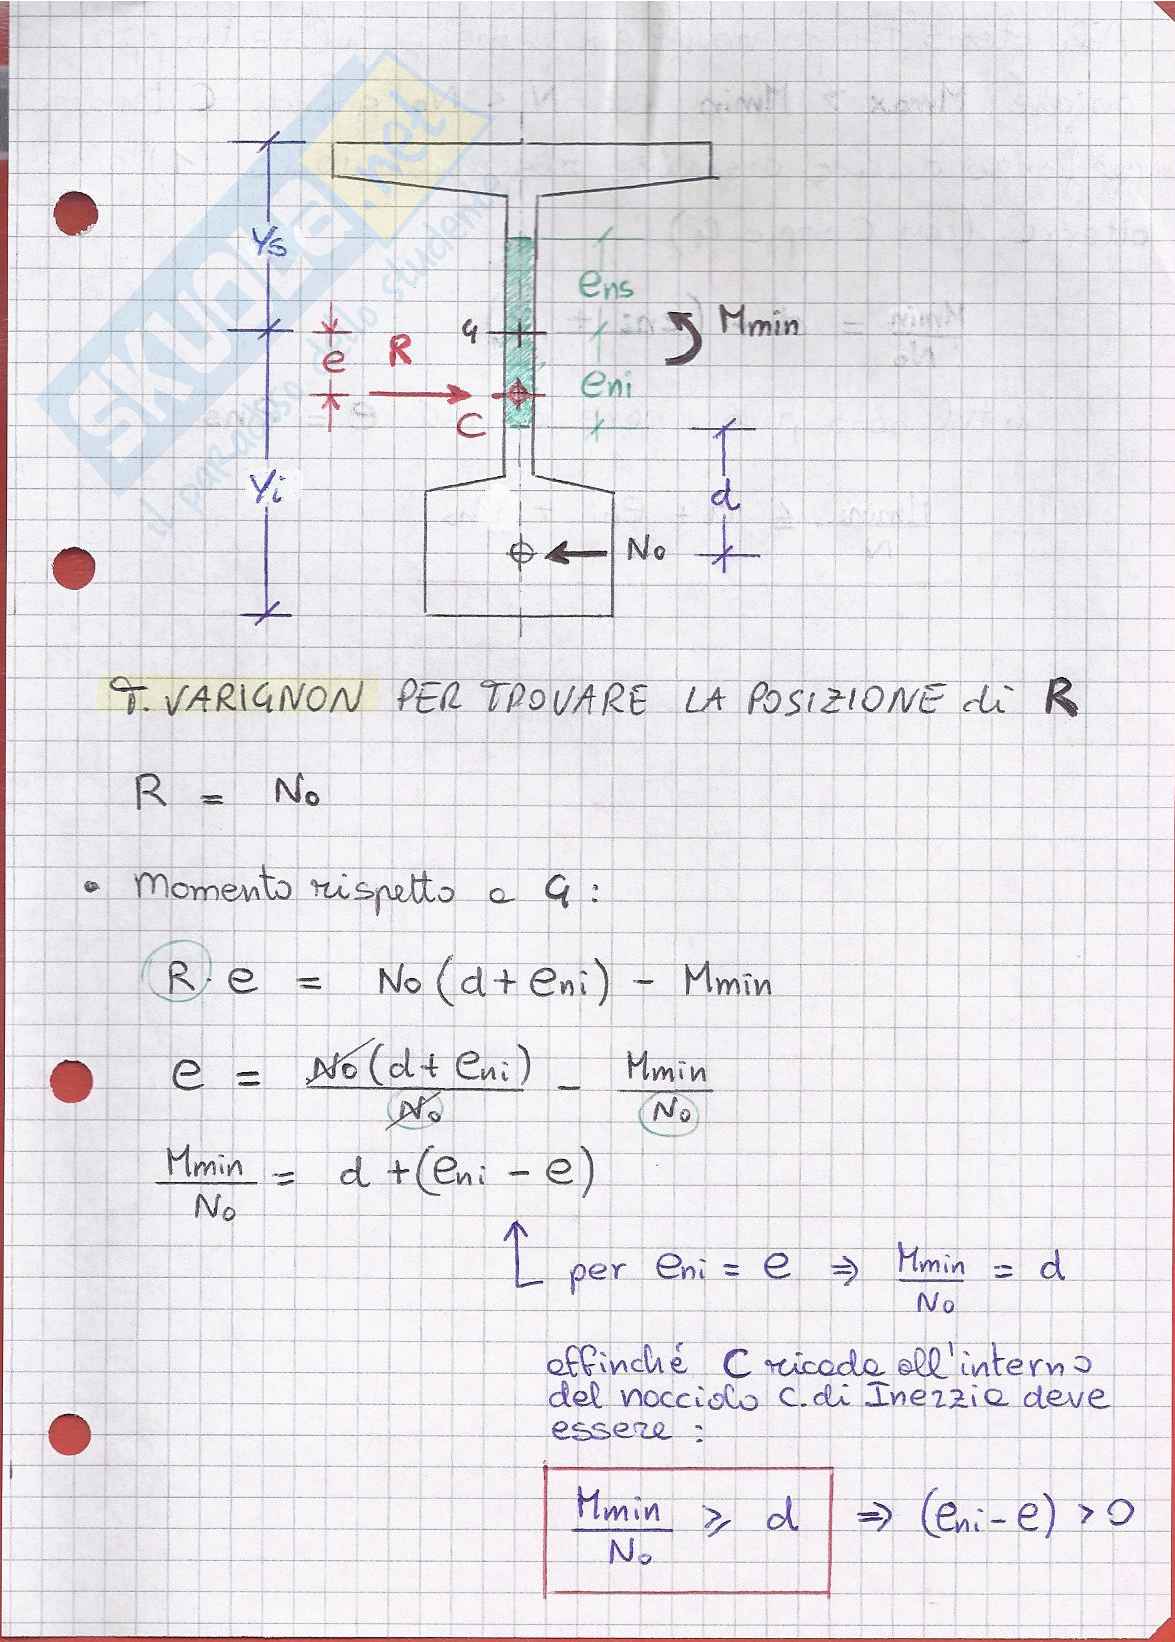 SKUOLA.net
il paradiso dello studente
Ys
ens
G
Mmin
e
R
eni
C
Yi
d
No
T. VARIGNON PER TROVARE LA POSIZIONE di R
R = No
• Momento rispetto a G :
R · e = No (d + eni) - Mmin
e = No (d + eni) / No - Mmin / No
Mmin / No = d + (eni - e)
per eni = e ⇒ Mmin / No = d
affinché C ricada all'interno
del nocciolo C. di Inerzia deve
essere :
Mmin / No ⩾ d ⇒ (eni - e) > 0